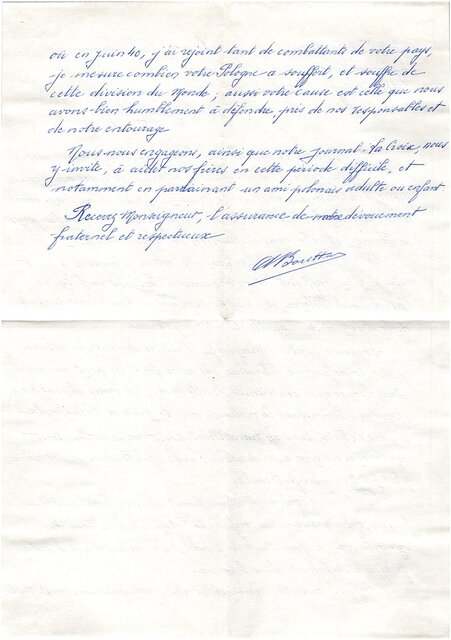 où en Juin 40, j'ai rejoint tant de combattants de votre pays,
je mesure combien votre Pologne a souffert, et souffre de
cette division du Monde; aussi votre cause est celle que nous
avons bien humblement à défendre, près de nos responsables et
de notre entourage
Nous nous engageons, ainsi que notre journal : La Croix, nous
y invite, à aider nos frères en cette période difficile, et
notamment en parrainant un ami polonais adulte ou enfant
Recevez Monseigneur, l'assurance de notre dévouement
fraternel et respectueux